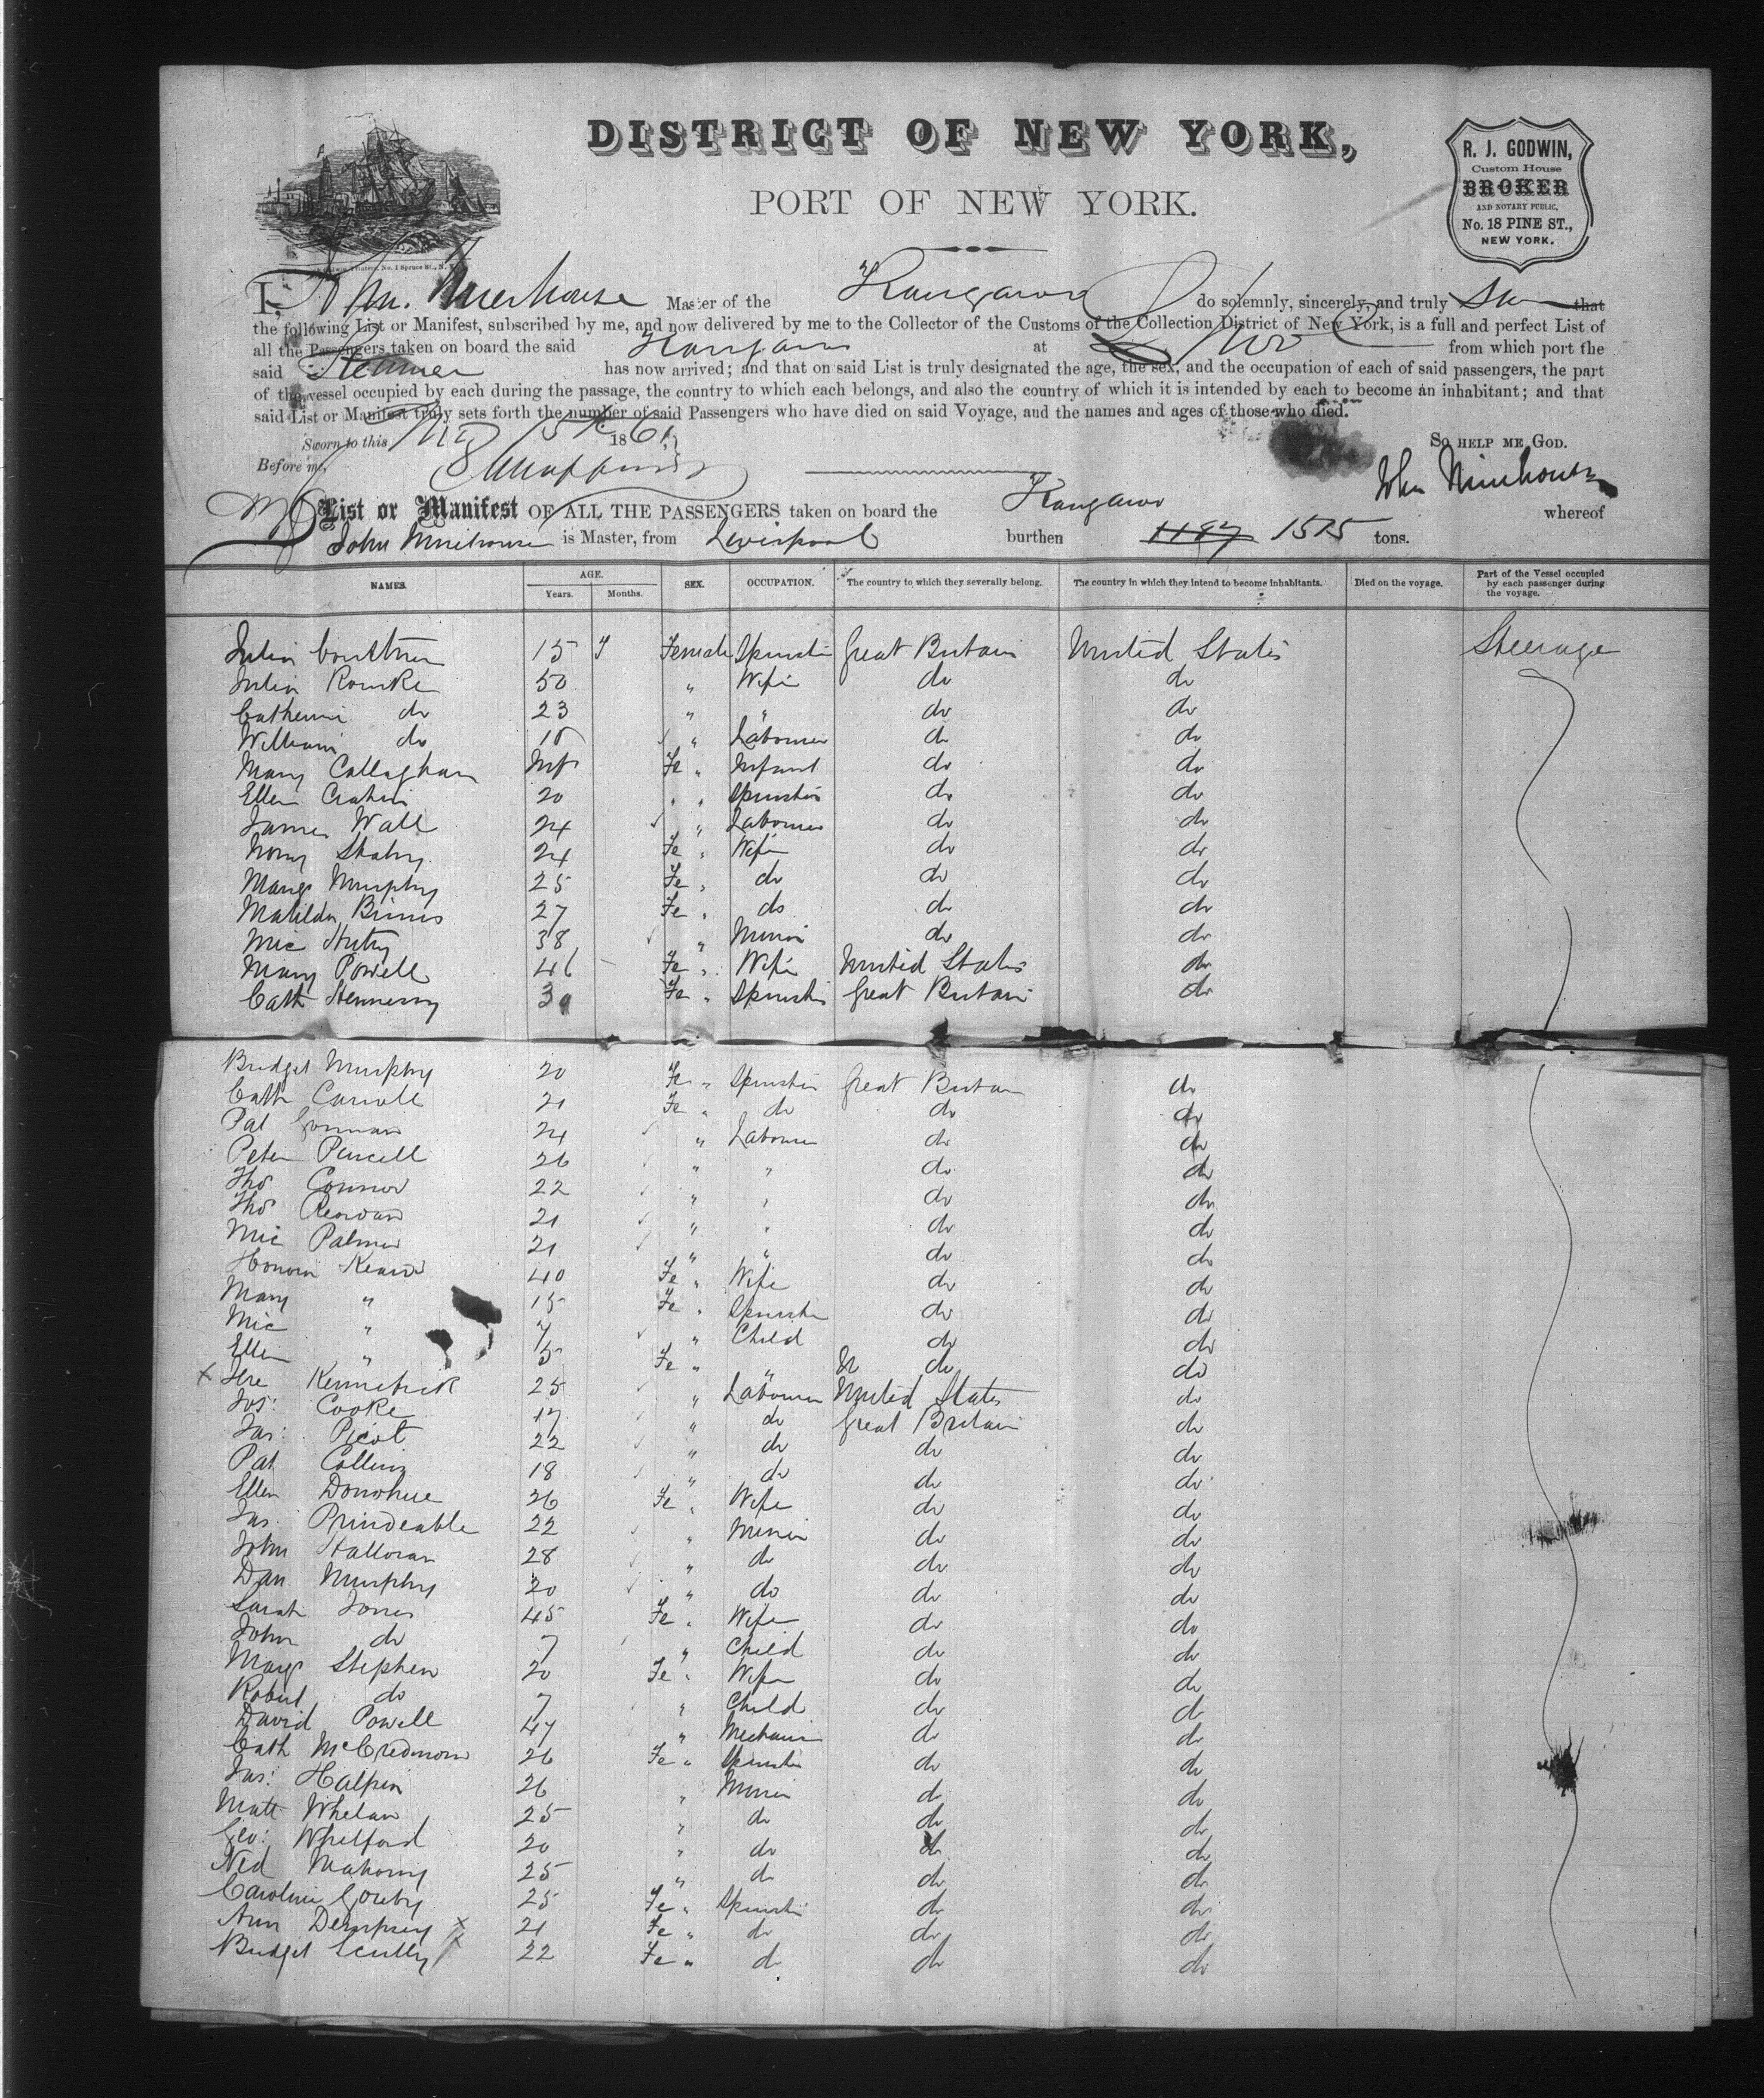 DISTRICT OF NEW YORK,
PORT OF NEW YORK.
R. J. GODWIN,
Custom House
BROKER
AND NOTARY PUBLIC,
No. 18 PINE ST.,
NEW YORK.
Printers, No. 1 Spruce St., N. Y.
I, Master of the Kangaroo do solemnly, sincerely, and truly that
the following List or Manifest, subscribed by me, and now delivered by me to the Collector of the Customs of the Collection District of New York, is a full and perfect List of
all the Passengers taken on board the said Kangaroo at from which port the
said Steamer has now arrived; and that on said List is truly designated the age, the sex, and the occupation of each of said passengers, the part
of the vessel occupied by each during the passage, the country to which each belongs, and also the country of which it is intended by each to become an inhabitant; and that
said List or Manifest truly sets forth the number of said Passengers who have died on said Voyage, and the names and ages of those who died.
Sworn to this 186 So HELP ME GOD.
Before me, John
List or Manifest OF ALL THE PASSENGERS taken on board the Kangaroo whereof
John is Master, from Liverpool burthen 1187 1515 tons.
NAMES. AGE. Years. Months. SEX. OCCUPATION. The country to which they severally belong. The country in which they intend to become inhabitants. Died on the voyage. Part of the Vessel occupied by each passenger during the voyage.
Julia 15 Female Spinster Great Britain United States Steerage
Julia Rourke 50 " Wife do do
Catherine do 23 " " do do
William do " Labourer do do
Mary Callaghan Inft Fe " Infant do do
Ellen 20 " " Spinster do do
James Wall 24 " Labourer do do
24 Fe " Wife do do
Margt Murphy 25 Fe " do do do
Matilda Binns 27 Fe " do do do
Mic 38 " Miner do do
Mary Powell 46 Fe " Wife United States do
Cath Hennessy 30 Fe " Spinster Great Britain do
Bridget Murphy 20 Fe " Spinster Great Britain do
Cath Carroll 21 Fe " do do do
Pat Gorman 24 " Labourer do do
Peter Purcell 26 " " do do
Thos Connor 22 " " do do
Thos Reardan 21 " " do do
Mic Palmer 21 " " do do
Honora 40 Fe " Wife do do
Mary " 15 Fe " Spinster do do
Mic " 7 " Child do do
Ellen " 5 Fe " " do do
x Jere Kennefick 25 " Labourer United States do
Jos: Cooke 17 " do Great Britain do
Jas: Picot 22 " do do do
Pat Collins 18 " do do do
Ellen Donohue 26 Fe " Wife do do
Jas. Prindeable 22 " Miner do do
John Halloran 28 " do do do
Dan Murphy 20 " do do do
Sarah Jones 45 Fe " Wife do do
John do 7 " Child do do
Margt Stephen 20 Fe " Wife do do
Robert do 7 " Child do do
David Powell 47 " Mechanic do do
Cath 26 Fe " Spinster do do
Jas: Halpin 26 " Miner do do
Matt Whelan 25 " do do do
Geo: Whelford 20 " do do do
Ned Mahony 25 " do do do
Caroline 25 Fe " Spinster do do
Ann Dempsey x 21 Fe " do do do
Bridget Scully x 22 Fe " do do do